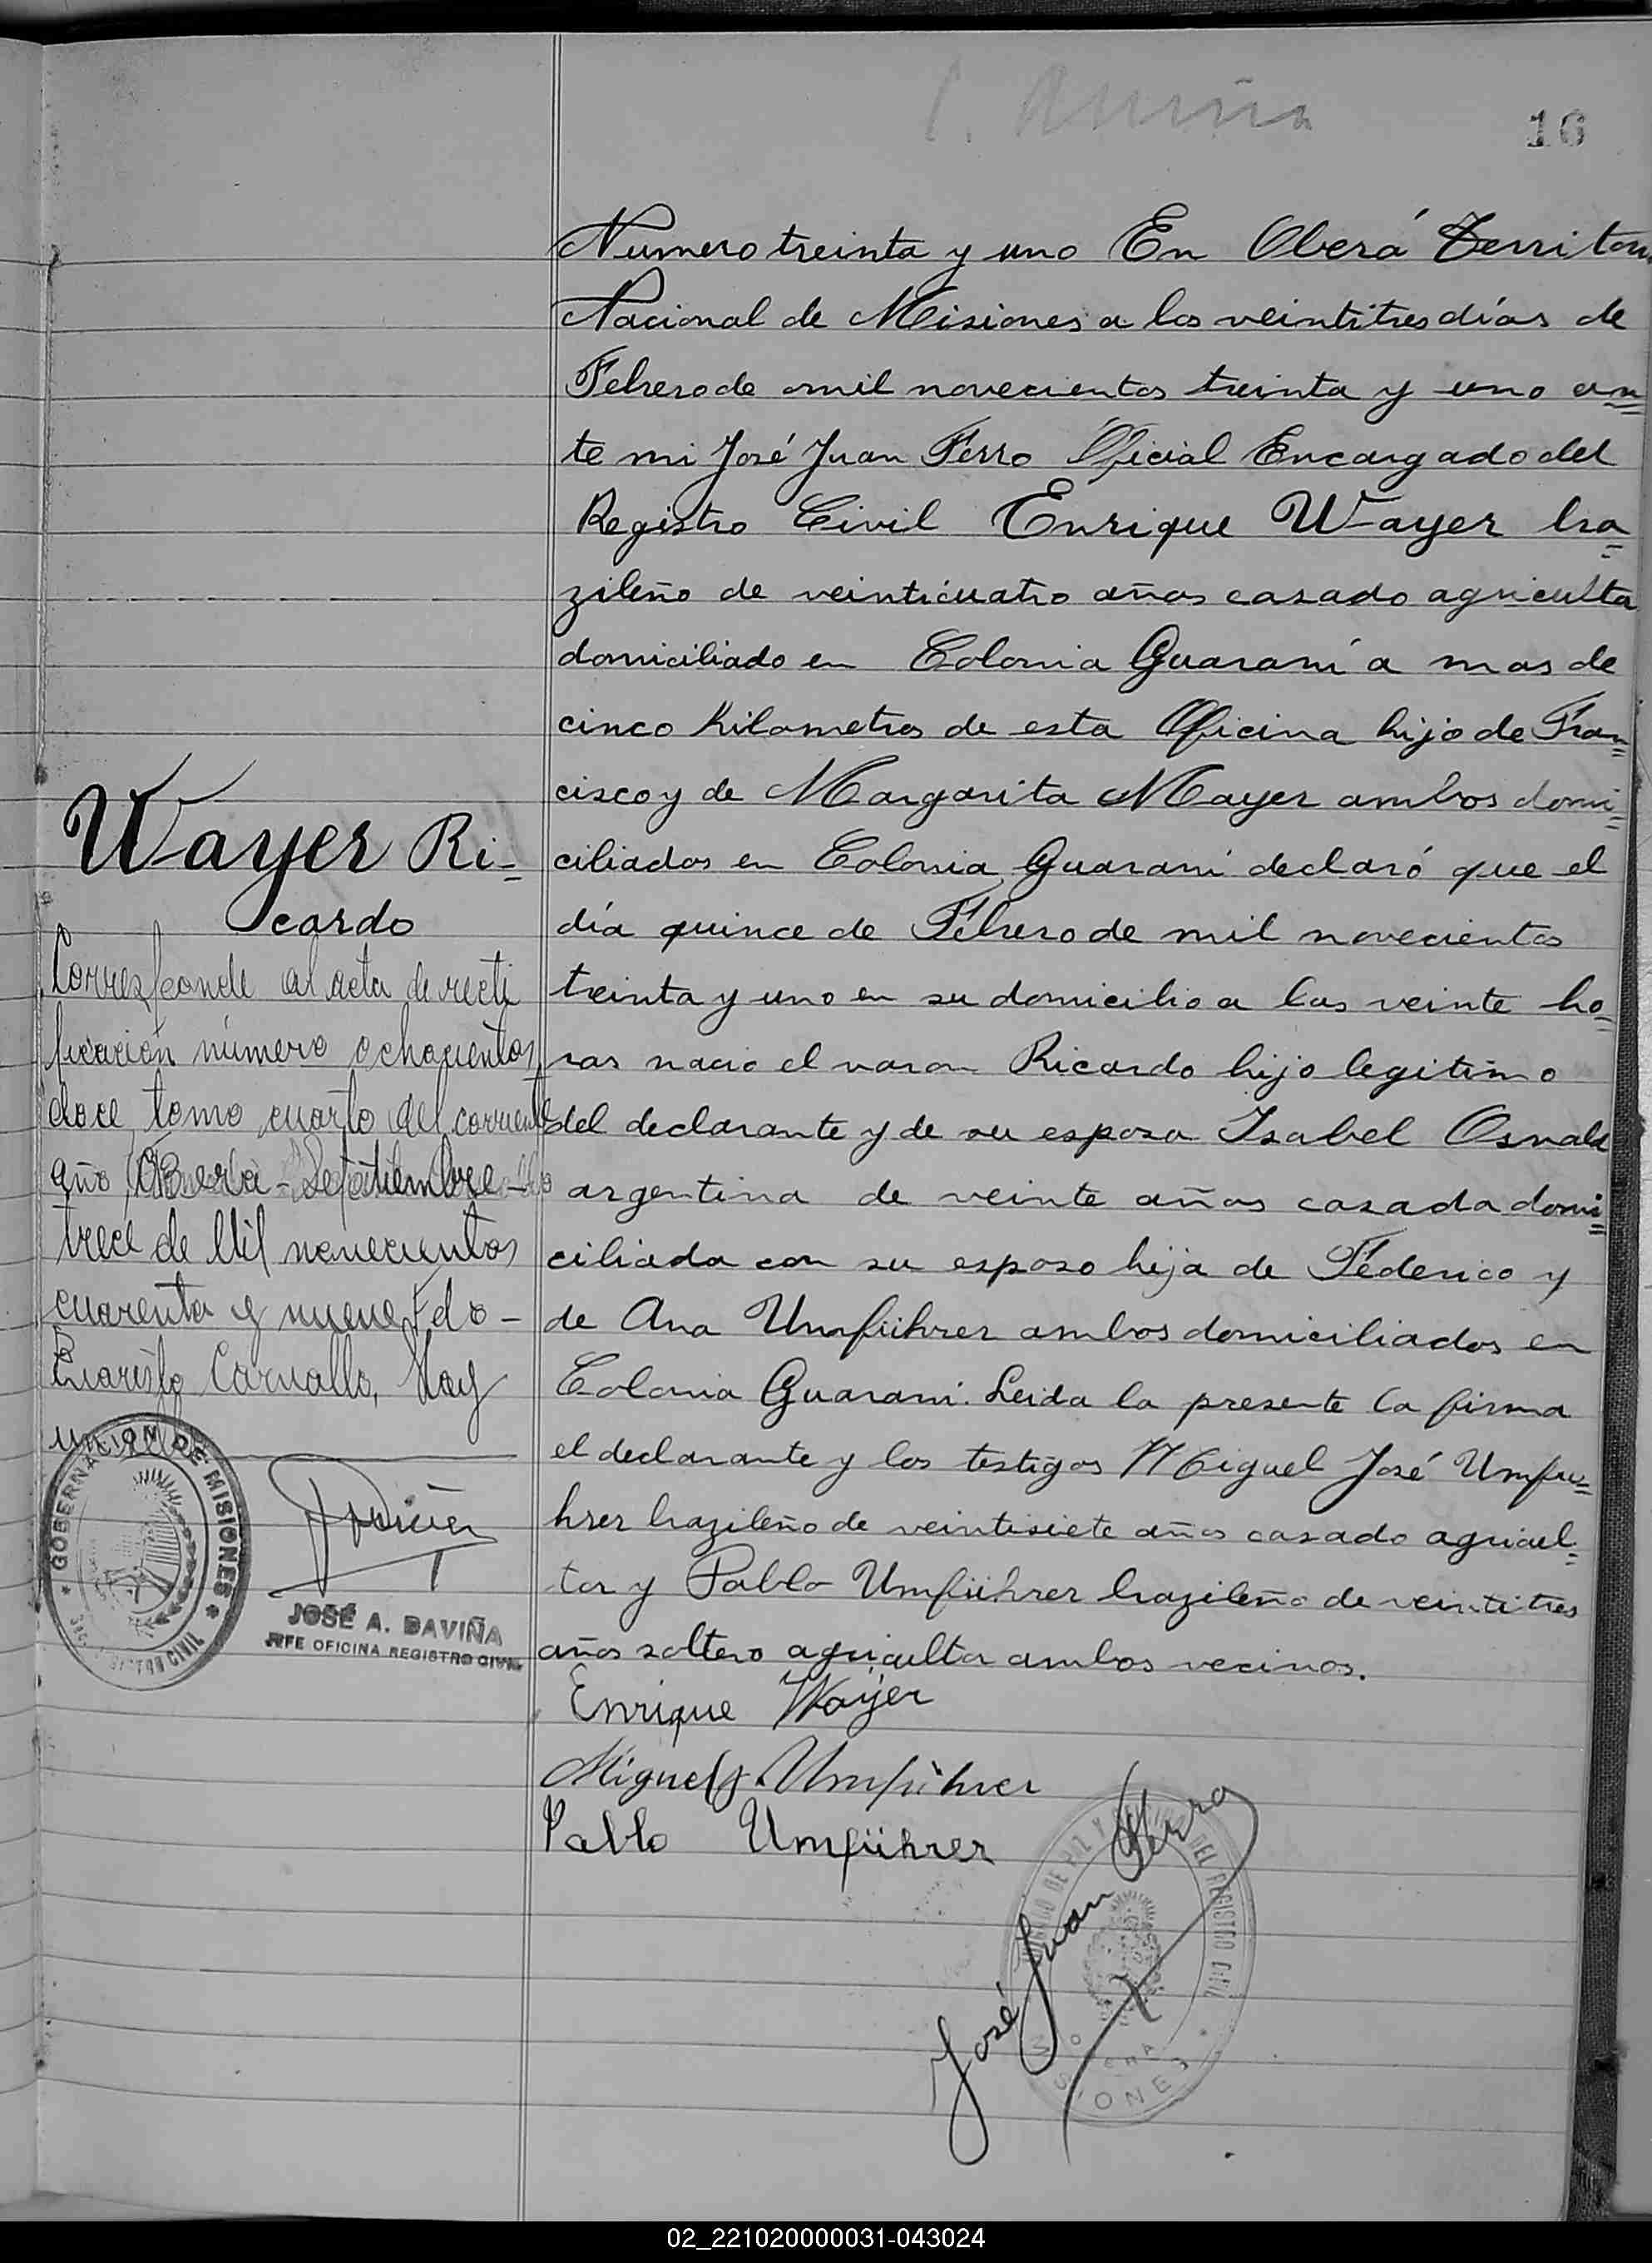 16
Numero treinta y uno En Oberá Territori
Nacional de Misiones a los veintitres días de
Febrero de mil novecientos treinta y uno an=
te mi José Juan Ferro Oficial Encargado del
Registro Civil Enrique Wayer bra=
zileño de veinticuatro años casado agriculto
domiciliado en Colonia Guaraní a mas de
cinco Kilometros de esta Oficina hijo de Fran=
cisco y de Margarita Mayer ambos domi=
ciliados en Colonia Guaraní declaró que el
día quince de Febrero de mil novecientos
treinta y uno en su domicilio a las veinte ho=
ras nacio el varon Ricardo hijo legitimo
del declarante y de su esposa Isabel Osvald
argentina de veinte años casada domi=
ciliada con su esposo hija de Federico y
de Ana Umführer ambos domiciliados en
Colonia Guaraní. Leida la presente la firma
el declarante y los testigos Miguel José Umfu=
hrer brazileño de veintisiete años casado agricul=
tor y Pablo Umführer brazileño de veintitres
años soltero agricultor ambos vecinos.
Enrique Wayer
Miguel J. Umführer
Pablo Umführer
José Juan Ferro
Wayer Ri=
cardo
Corresponde al acta de recti
ficación número ochocientos
doce tomo cuarto del corriente
año Oberá - Septiembre
trece de Mil novecientos
cuarenta y nueve Fdo -
Evaristo Carvallo, Hay
un sello
GOBERNACION DE MISIONES
REGISTRO CIVIL
JOSÉ A. DAVIÑA
JEFE OFICINA REGISTRO CIVIL
DEL REGISTRO CIVIL
OBERA
MISIONES
02_221020000031-043024